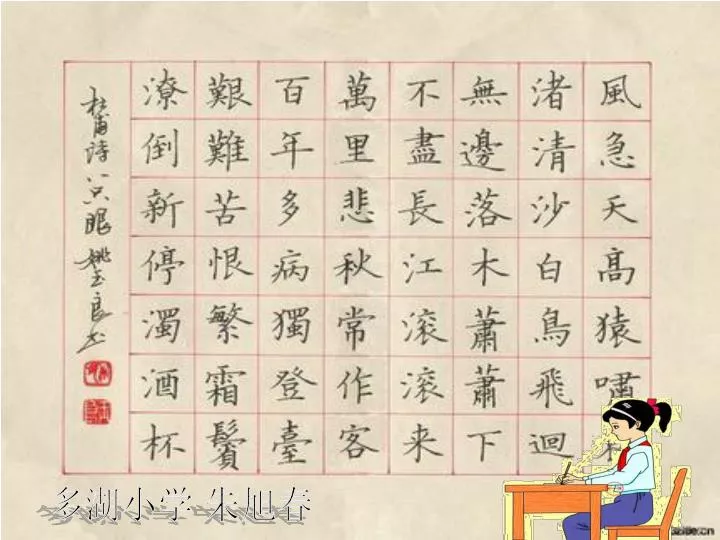 風急天高猿嘯
渚清沙白鳥飛迴
無邊落木蕭蕭下
不盡長江滾滾来
萬里悲秋常作客
百年多病獨登臺
艱難苦恨繁霜鬢
潦倒新停濁酒杯
杜甫詩 眼 姚玉良书
多湖小学 朱旭春